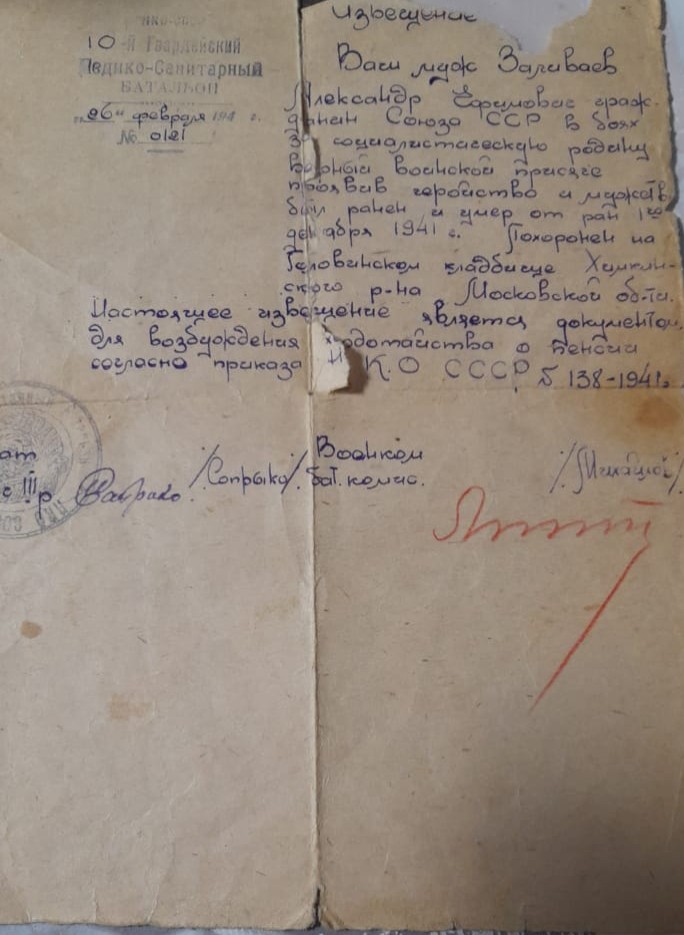 Извещение
10-й Гвардейский
Медико-Санитарный
БАТАЛЬОН
"26" февраля 194 г.
№ 0121
Ваш муж Заливаев
Александр Ефимович граж-
данин Союза ССР в боях
за социалистическую родину
верный воинской присяге
проявив геройство и мужеств
был ранен и умер от ран 1го
декабря 1941 г. Похоронен на
Головинском кладбище Химкин-
ского р-на Московской об-ти.
Настоящее извещение является документом
для возбуждения ходотайства о пенсии
согласно приказа Н.К.О СССР № 138-1941г.
Военком
/Сопрыко/ бат. комис.